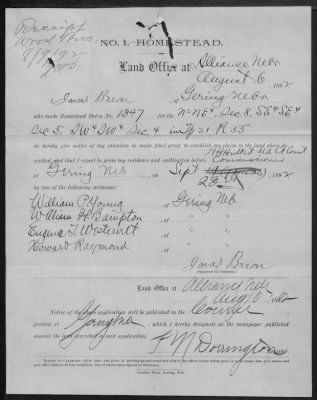 Receipt
Wood Bros.
8/19/92
NO. 1.—HOMESTEAD.
Land Office at Alliance, Nebr
August 6, 1892
I, Jonas Breon, of Gering Nebr
who made Homestead Entry No. 1347 for the N½NE¼, Sec 8, SE¼SE¼
Sec 5, SW¼SW¼ Sec 4 in Tp 21 R 55
do hereby give notice of my intention to make final proof to establish my claim to the land above
scribed, and that I expect to prove my residence and cultivation before
Commissioner
at Gering Neb on Sept 1892
by two of the following witnesses:
William P. Young of Gering Neb
William H. Bampton of " "
Eugene T. Westervelt of " "
Howard Raymond of " "
Jonas Breon
(Signature of Claimant.)
Land Office at Alliance Neb
Aug 10 1892
Notice of the above application will be published in the Courier
printed at Gering Neb, which I hereby designate as the newspaper published
nearest the land described in said application.
F. M. Dorrington
Courier Print, Gering, Neb.